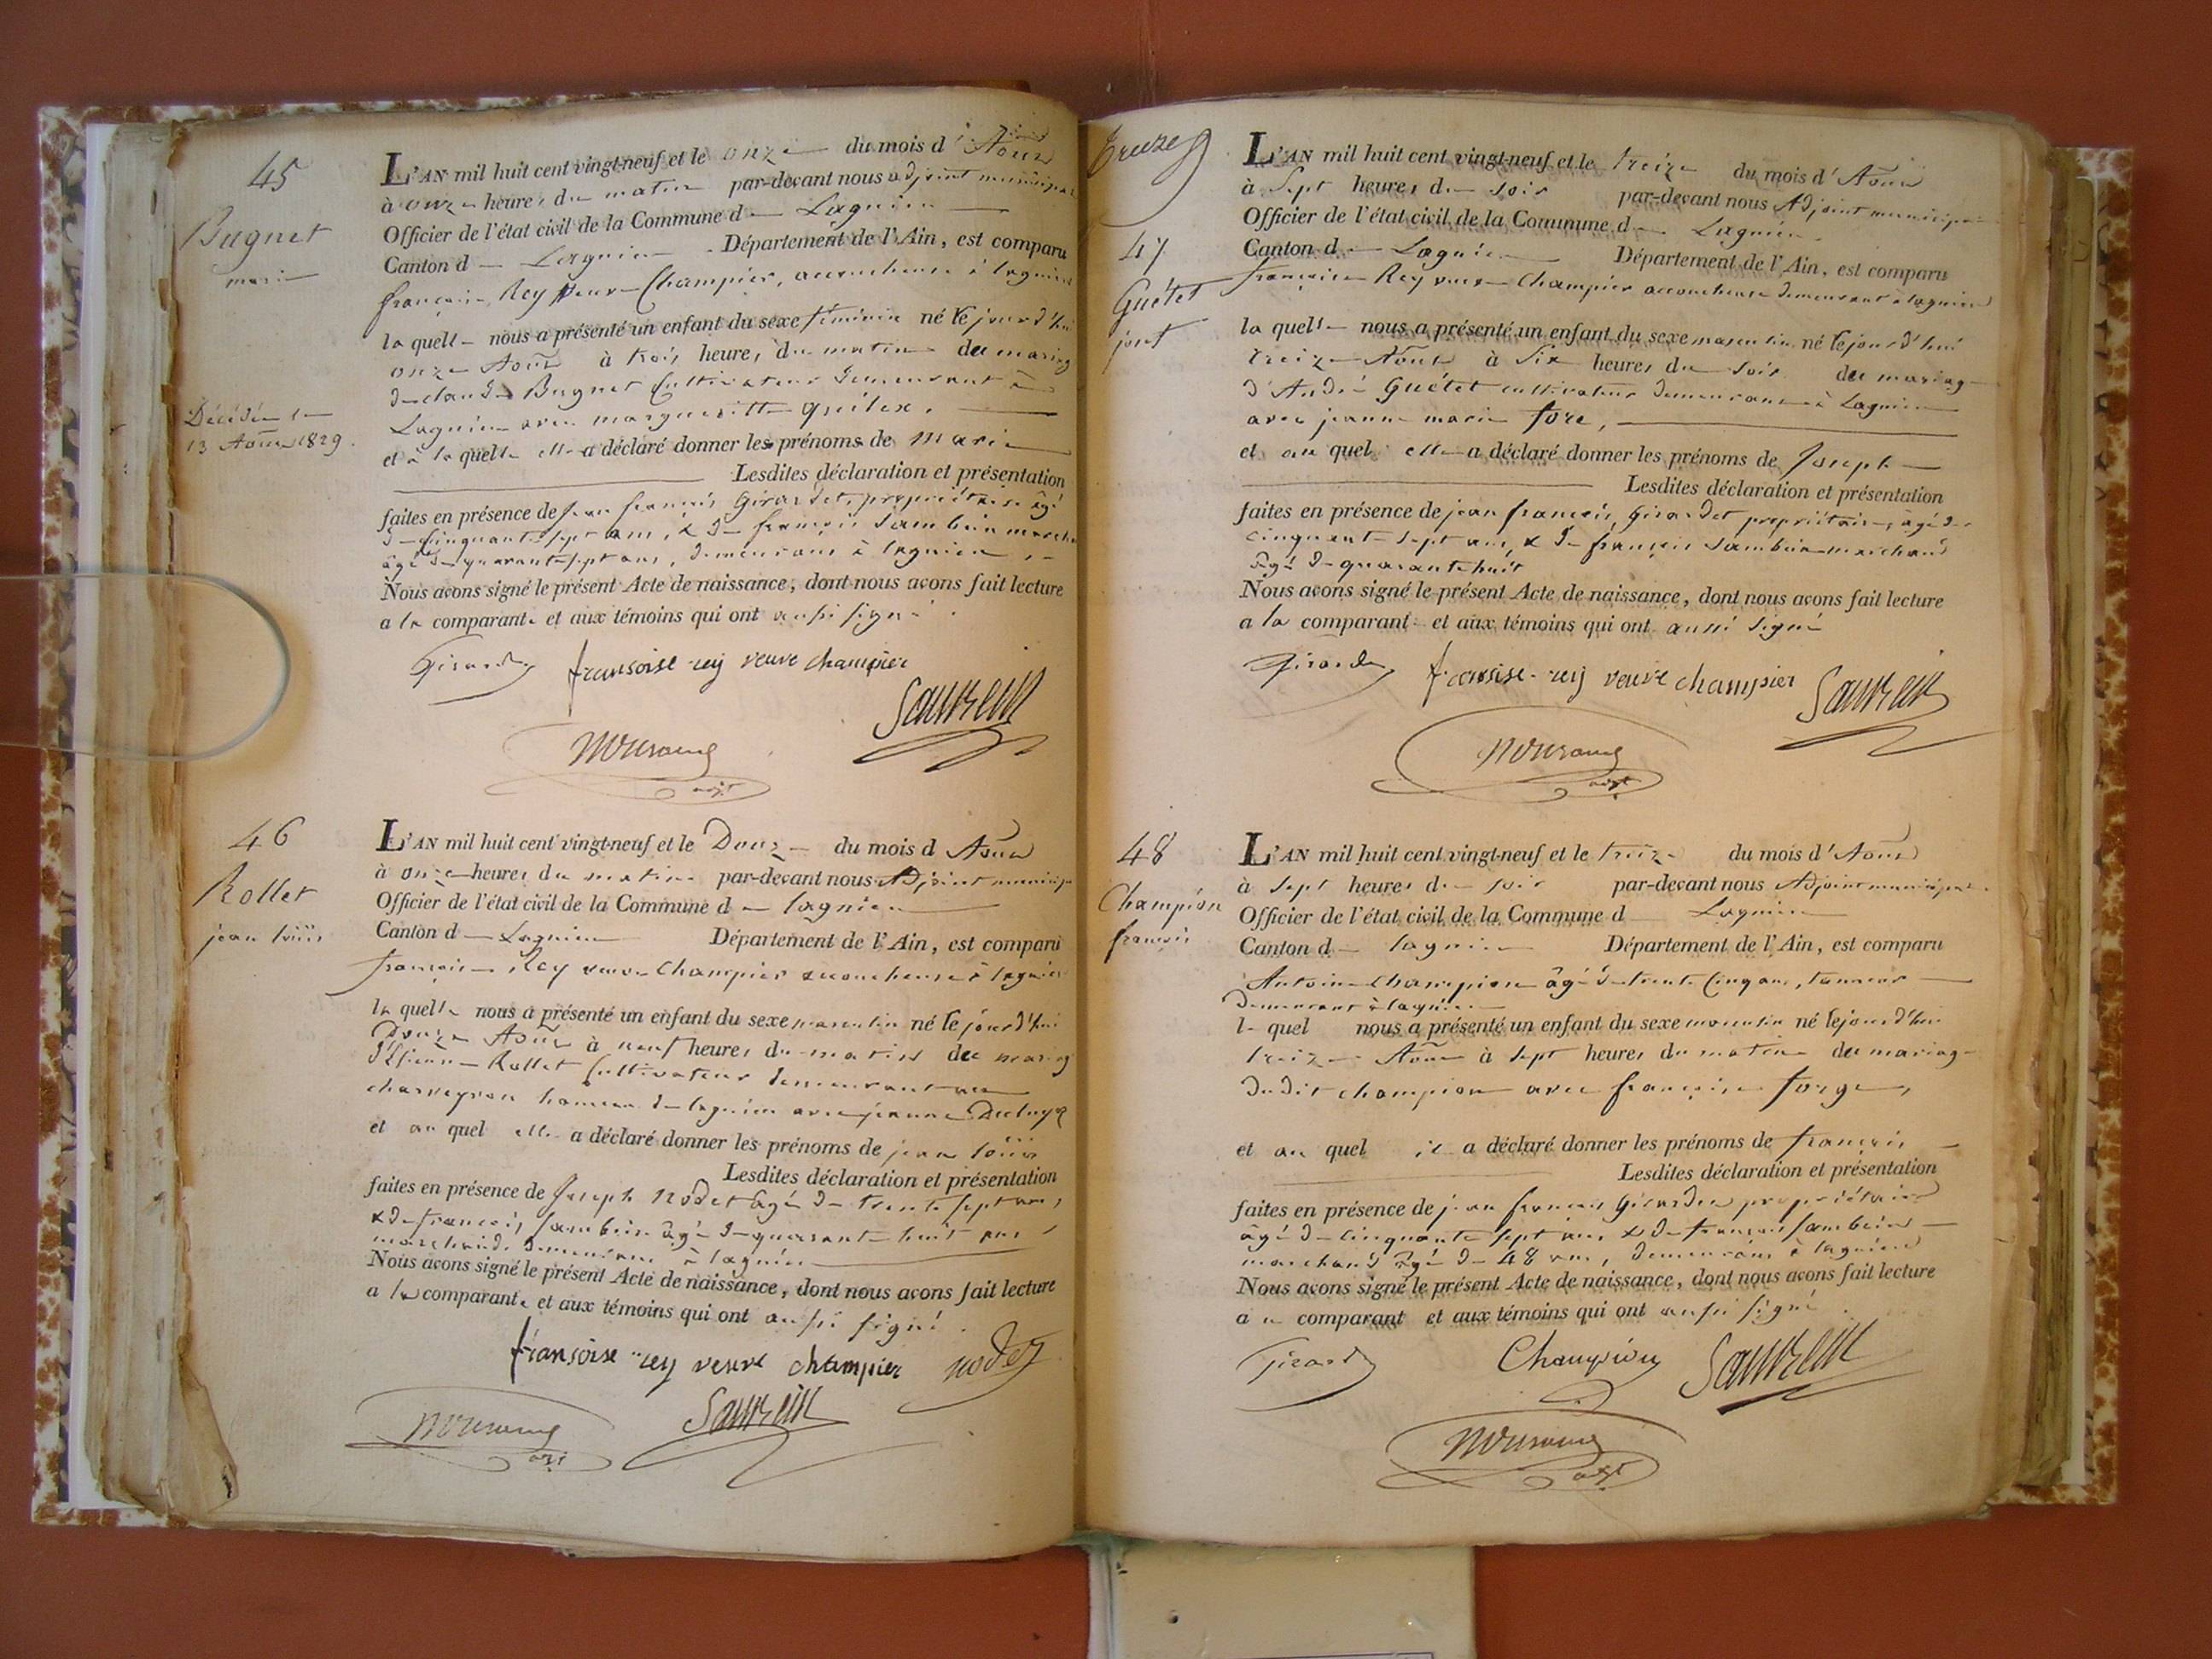 45
Bugnet
marie
Décédée le
13 Août 1829.
L'AN mil huit cent vingt-neuf et le onze du mois d'Août
à onze heures du matin par-devant nous adjoint municipal
Officier de l'état civil de la Commune de Lagnieu
Canton de Lagnieu Département de l'Ain, est comparu
françoise Rey veuve Champier, accoucheuse à lagnieu
la quelle nous a présenté un enfant du sexe féminin né le jourd'hui
onze Août à trois heures du matin du mariage
de claude Bugnet Cultivateur demeurant à
Lagnieu avec margueritte
et à la quelle elle a déclaré donner les prénoms de marie
Lesdites déclaration et présentation
faites en présence de jean françois Girardet, propriétaire âgé
de Cinquante sept ans, & de françois Sambein marchand
âgé de quarante sept ans, demeurans à lagnieu
Nous avons signé le présent Acte de naissance, dont nous avons fait lecture
a la comparante et aux témoins qui ont aussi signé.
Girardet fransoise rey veuve champier
Sambein
adjt
46
Rollet
jean loüis
L'AN mil huit cent vingt-neuf et le Douze du mois d Août
à onze heures du matin par-devant nous Adjoint municipal
Officier de l'état civil de la Commune de lagnieu
Canton de Lagnieu Département de l'Ain, est comparu
françoise Rey veuve Champier accoucheuse à lagnieu
la quelle nous a présenté un enfant du sexe masculin né le jourd'hui
Douze Août à neuf heures du matin du mariage
d'Etienne Rollet Cultivateur demeurant au
charveyron hameau de lagnieu avec jeanne
et au quel elle a déclaré donner les prénoms de jean loüis
Lesdites déclaration et présentation
faites en présence de Joseph Nodet âgé de trente sept ans,
& de françois Sambein âgé de quarante huit ans
marchands demeurans à lagnieu
Nous avons signé le présent Acte de naissance, dont nous avons fait lecture
a la comparante et aux témoins qui ont aussi signé.
fransoise rey veuve champier nodet
Sambein
adjt
Treize
47
Guétet
joseph
L'AN mil huit cent vingt-neuf et le treize du mois d'Août
à Sept heures du soir par-devant nous Adjoint municipal
Officier de l'état civil de la Commune de Lagnieu
Canton de Lagnieu Département de l'Ain, est comparu
françoise Rey veuve Champier accoucheuse demeurant à lagnieu
la quelle nous a présenté un enfant du sexe masculin né le jourd'hui
treize Août à Six heures du soir du mariage
d'André Guétet cultivateur demeurant à Lagnieu
avec jeanne marie fore,
et au quel elle a déclaré donner les prénoms de Joseph
Lesdites déclaration et présentation
faites en présence de jean françois Girardet propriétaire, âgé de
cinquante sept ans, & de françois Sambein marchand
âgé de quarante huit
Nous avons signé le présent Acte de naissance, dont nous avons fait lecture
a la comparante et aux témoins qui ont aussi signé
Girardet fransoise rey veuve champier Sambein
adjt
48
Champion
françois
L'AN mil huit cent vingt-neuf et le treize du mois d'Août
à sept heures du soir par-devant nous Adjoint municipal
Officier de l'état civil de la Commune d Lagnieu
Canton de lagnieu Département de l'Ain, est comparu
Antoine Champion âgé de trente Cinq ans, tanneur
demeurant à lagnieu
le quel nous a présenté un enfant du sexe masculin né le jourd'hui
treize Août à sept heures du matin du mariage
dudit champion avec françoise forge,
et au quel il a déclaré donner les prénoms de françois
Lesdites déclaration et présentation
faites en présence de jean françois Girardet propriétaire
âgé de Cinquante sept ans & de françois Sambein
marchand âgé de 48 ans, demeurans à lagnieu
Nous avons signé le présent Acte de naissance, dont nous avons fait lecture
a u comparant et aux témoins qui ont aussi signé.
Girardet Champion Sambein
adjt